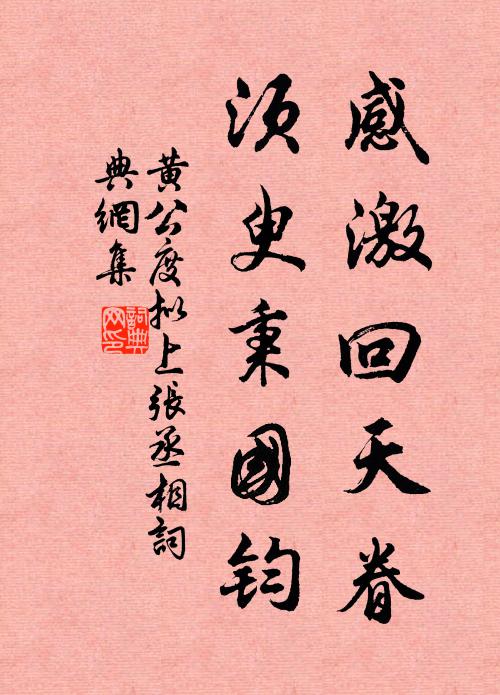 感激回天眷
須臾秉國鈞
黄公度拟上張丞相詞
典網集
詞典網印